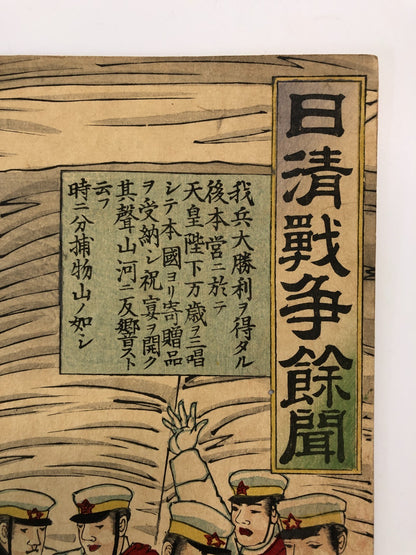 日清戰争餘聞
我兵大勝利ヲ得タル
後本営ニ於テ
天皇陛下万歳ヲ三唱
シテ本國ヨリ寄贈品
ヲ受納シ祝宴ヲ開ク
其聲山河ニ反響音スト
云フ
時ニ分捕物山ノ如シ